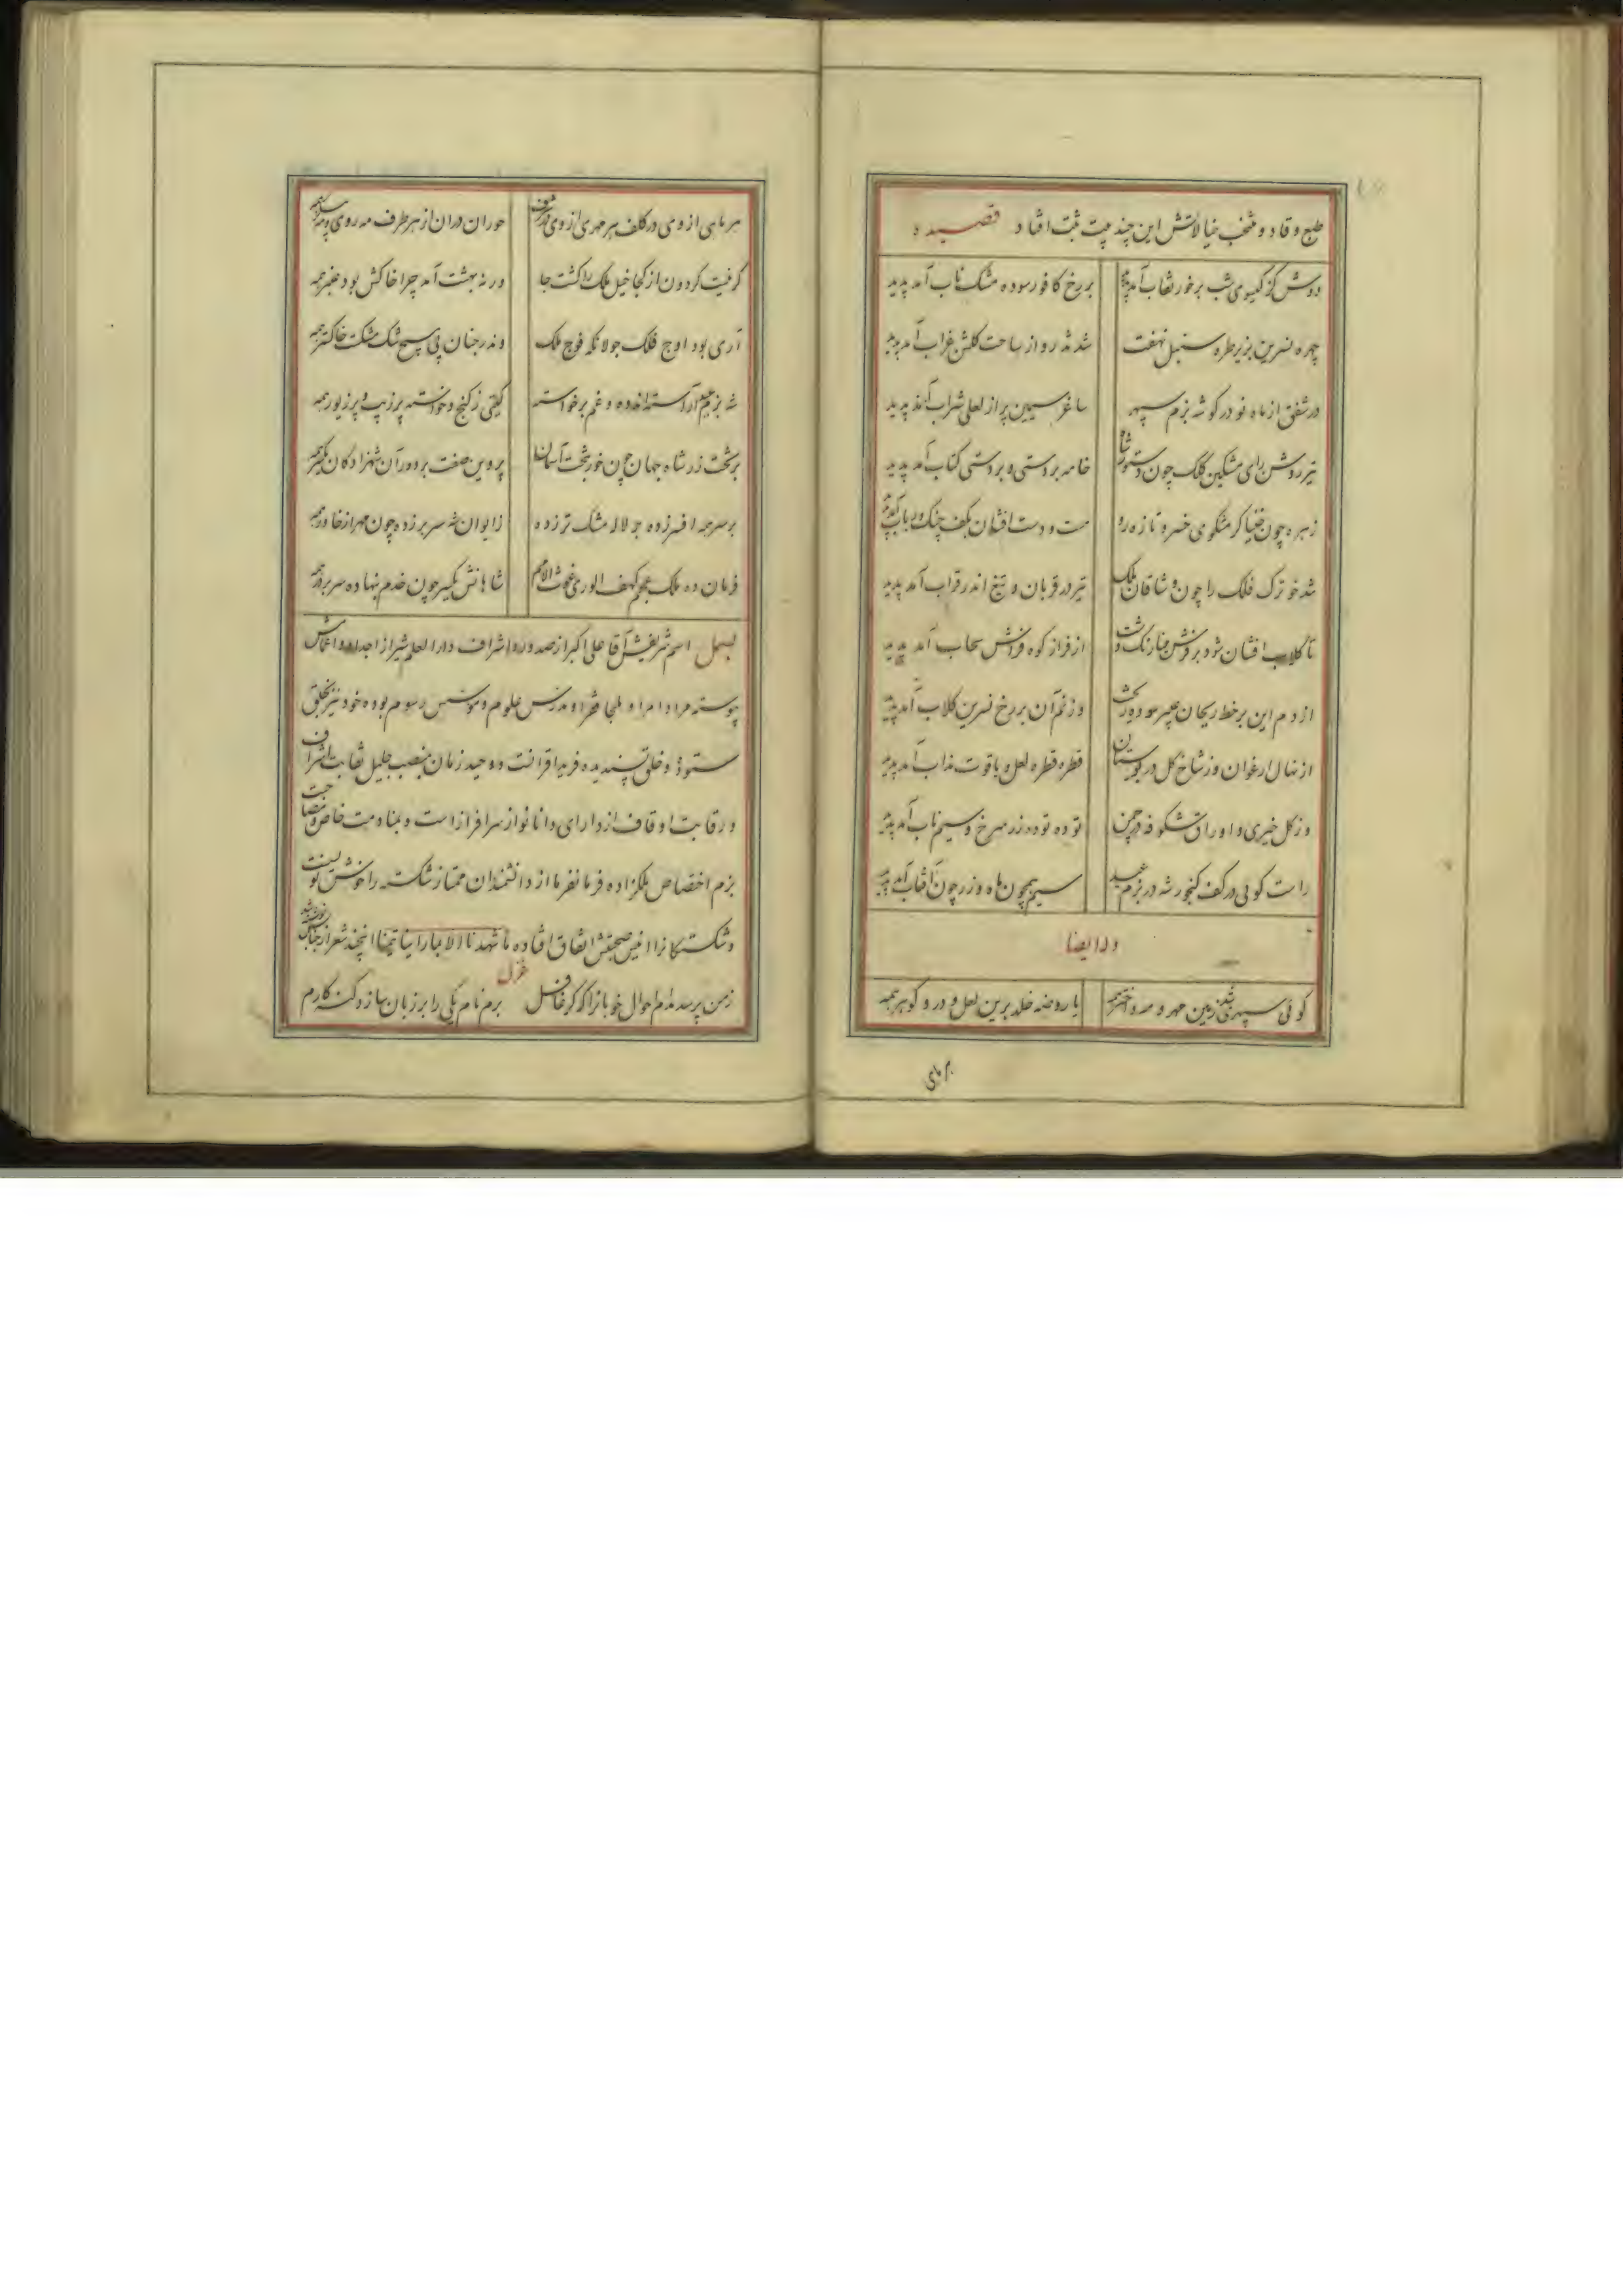 طبع وقاد و منتخب خیالاتش این چند بیت ثبت افتاد قصیده
دوش کز گیسوی شب بر خور نقاب آمد پدید بر رخ کافور سوده مشک ناب آمد پدید
چهره نسرین بزیر طره سنبل نهفت شد تذرو از ساحت گلشن غراب آمد پدید
در شفق از ماه نو در گوشه بزم سپهر ساغر سیمین پر از لعلی شراب آمد پدید
تیر روشن رای مشکین کلک چون دستور شاه خامه بر دستی و بر دستی کتاب آمد پدید
زهره چون خنیاگر مشکوی خسرو تازه رو مست و دست افشان بکف چنگ و رباب آمد پدید
شد خو ترک فلک را چون وشاقان ملک تیر در قربان و تیغ اندر قراب آمد پدید
تا گلاب افشان شود بر فرش از فراز کوه فراش سحاب آمد پدید
از دم این بر خط ریحان عبیر سوده وز نم آن بر رخ نسرین گلاب آمد پدید
از نهال ارغوان وز شاخ گل در بوستان قطره قطره لعل و یاقوت مذاب آمد پدید
وز گل خیری و اوراق شکوفه در چمن توده توده زر سرخ و سیم ناب آمد پدید
راست گوئی در کف گنجور شه در بزم عید سیم چون ماه و زر چون آفتاب آمد پدید
وله ایضا
گوئی سپهری شد زمین مهر و مه و اختر همه یا روضه خلد برین لعل و در و گوهر همه
هر ماهی
هر ماهی از وی در کلف هر مهری از وی حوران در ان از هر طرف مه روی و
گر نیست گردون از کجا خیل ملک را گشت جا ور نه بهشت آمد چرا خاکش بود عنبر همه
آری بود اوج فلک جولانگه فوج ملک وندر جنان بی هیچ شک مشکست خاکستر همه
شه بزم عید آراسته انده و غم برخواسته گیتی ز گنج و خواسته پر زیب و پر زیور همه
بر تخت زر شاه جهان چون خور بتخت آسمان پروین صفت بر دور آن شهزادگان یکسر همه
بر سر همه افسر زده بر لاله مشک تر زده ز ایوان شه سر بر زده چون مهر از خاور همه
فرمان ده ملک عجم کهف الوری غوث الامم شاهانش یکسر چون خدم بنهاده سر بر در همه
بسمل اسم شریفش آقا علی اکبر از صدور و اشراف دار العلم شیراز اجداد و اعمامش
پیوسته مراد امرا و ملجا فقرا و مدرس علوم و موسس رسوم بوده خود نیز بخلق
ستوده و خلق پسندیده فرید اقرانست و وحید زمان بمنصب جلیل نقابت اشراف
و رقابت اوقاف از دارای دانا نواز سرافراز است و بمنادمت خاص و مصاحبت
بزم اختصاص ملکزاده فرمانفرما از دانشمندان ممتاز شکسته را خوش نویست
و شکستگانرا انیس صحبتش اتفاق افتاده ما شهدنا الا اینچند شعر از
غزل
ز من پرسد مدام احوال خوبانرا که گر غافل برم نام یکی را بر زبان سازد گنه کارم